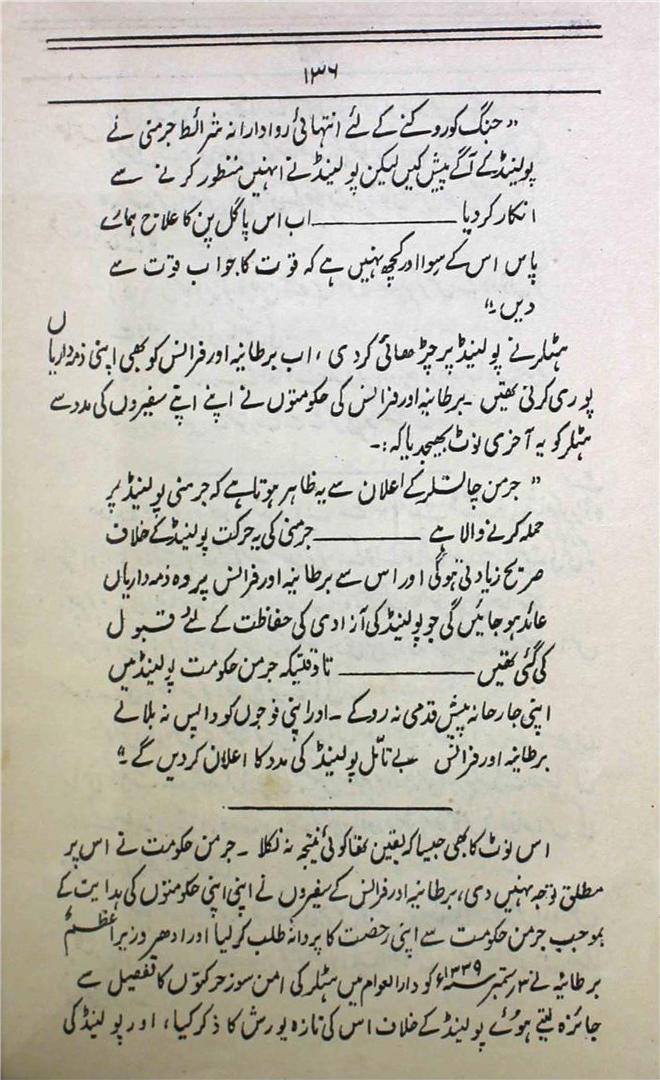 ۱۳۶
" جنگ کو روکنے کے لئے انتہائی روادارانہ شرائط جرمنی نے
پولینڈ کے آگے پیش کیں لیکن پولینڈ نے انہیں منظور کرنے سے
انکار کر دیا ــــــــــــــ اب اس پاگل پن کا علاج ہمارے
پاس اس کے سوا اور کچھ نہیں ہے کہ قوت کا جواب قوت سے
دیں۔"
ہٹلر نے پولینڈ پر چڑھائی کر دی ، اب برطانیہ اور فرانس کو بھی اپنی ذمہ داریاں
پوری کرنی تھیں ۔ برطانیہ اور فرانس کی حکومتوں نے اپنے اپنے سفیروں کی مدد سے
ہٹلر کو یہ آخری نوٹ بھیجدیا کہ :۔
" جرمن چانسلر کے اعلان سے یہ ظاہر ہوتا ہے کہ جرمنی پولینڈ پر
حملہ کرنے والا ہے ــــــــــــــ جرمنی کی یہ حرکت پولینڈ کے خلاف
صریح زیادتی ہوگی اور اس سے برطانیہ اور فرانس پر وہ ذمہ داریاں
عائد ہو جائیں گی جو پولینڈ کی آزادی کی حفاظت کے لئے قبول
کی گئی تھیں ــــــــــــــ تا وقتیکہ جرمن حکومت پولینڈ میں
اپنی جارحانہ پیش قدمی نہ روکے ۔ اور اپنی فوجوں کو واپس نہ بلالے
برطانیہ اور فرانس بے تامل پولینڈ کی مدد کا اعلان کر دیں گے ۔"
اس نوٹ کا بھی جیسا کہ یقین تھا کوئی نتیجہ نہ نکلا ۔ جرمن حکومت نے اس پر
مطلق توجہ نہیں دی ، برطانیہ اور فرانس کے سفیروں نے اپنی اپنی حکومتوں کی ہدایت کے
بموجب جرمن حکومت سے اپنی رخصت کا پروانہ طلب کر لیا اور ادھر وزیر اعظم
برطانیہ نے ۳ ستمبر ۱۳۳۹ء کو دارالعوام میں ہٹلر کی امن سوز حرکتوں کا تفصیل سے
جائزہ لیتے ہوئے پولینڈ کے خلاف اس کی تازہ یورش کا ذکر کیا ، اور پولینڈ کی